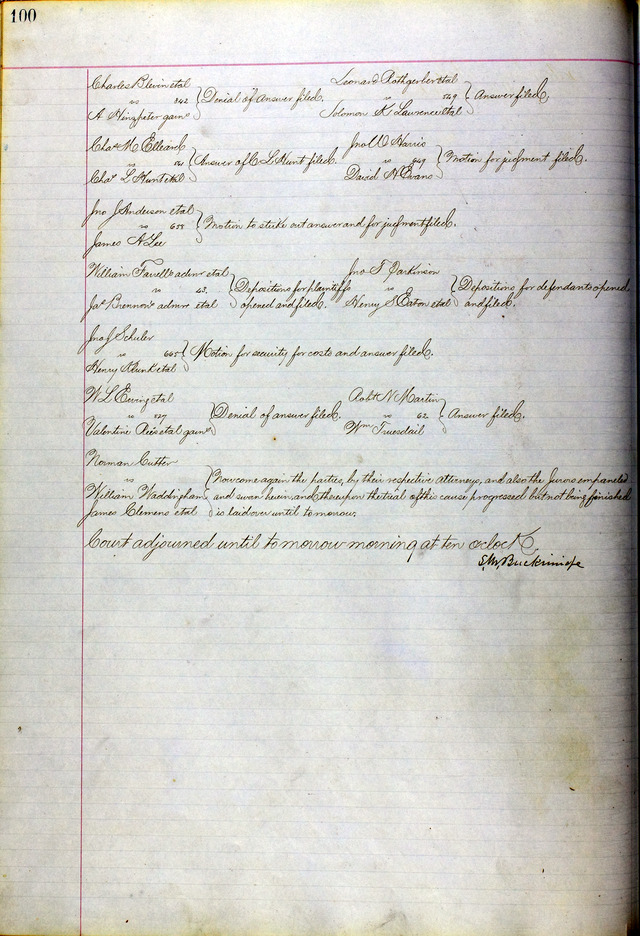 100
Charles Blevin etal
vs 842 } Denial of Answer filed.
A Hinzpeter garn^e
Leonard Rothgerber etal
vs 549 } Answer filed,
Solomon K Lawrence etal
Cha^s M Elleard
vs } Answer of C L Hunt filed.
Cha^s L Hunt etal
Jno W Harris
vs } Motion for judgment filed.
David H Evans
Jno J Anderson etal
vs 655 } Motion to strike out answer and for judgment filed.
James A Lee
William Farrell's admr etal
vs } Depositions for plaintiffs
Ja^s Brennan's admrx etal opened and filed.
Jno T Parkinson
vs } Depositions for defendants opened
Henry S Eaton etal and filed.
Jno J Schuler
vs 665 } Motion for security for costs and answer filed.
Henry Runk etal
W L Ewing etal
vs } Denial of answer filed.
Valentine Reis etal garn^s
Rob^t N Martin
vs 62 } Answer filed.
W^m Truesdail
Norman Cutter
vs } Now come again the parties, by their respective attorneys, and also the Jurors empaneled
William Waddingham and sworn herein, and thereupon the trial of this cause progressed but not being finished
James Clemens etal is laid over until tomorrow.
Court adjourned until tomorrow morning at ten oclock